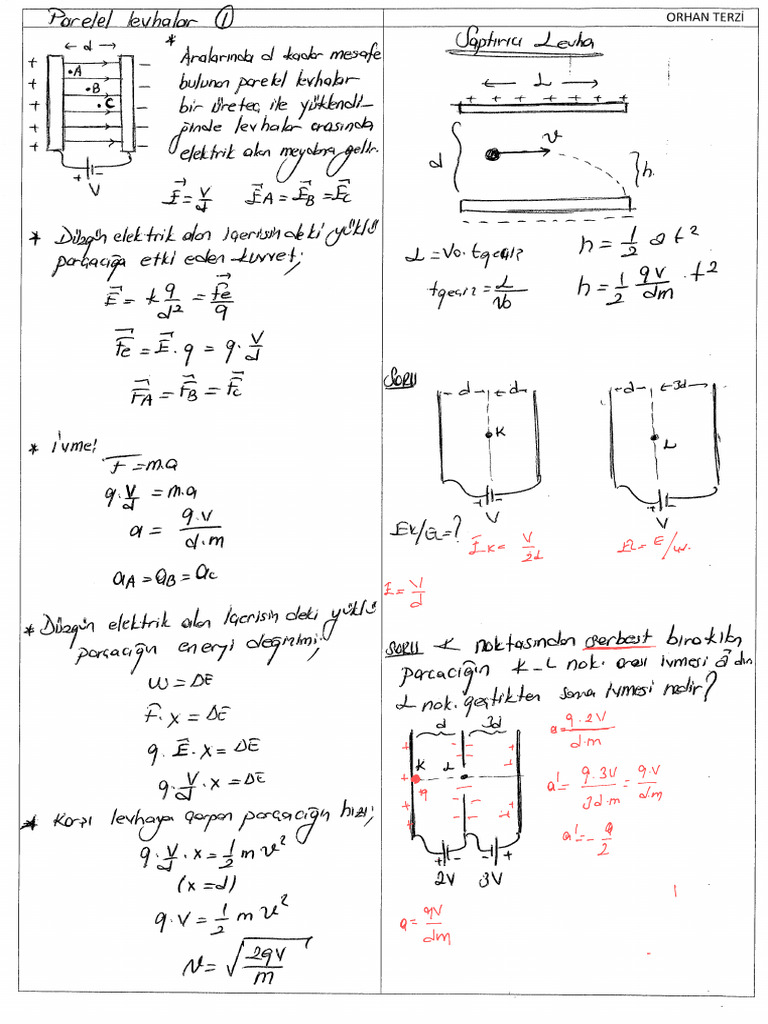 ORHAN TERZİ
Parelel levhalar ①
← d →
+ -
• A
• B
• C
+ -
V
* Aralarında d kadar mesafe
bulunan parelel levhalar
bir üreteç ile yüklendi-
ğinde levhalar arasında
elektrik alan meydana gelir.
E = V/d EA = EB = EC
* Düzgün elektrik alan içerisindeki yüklü
parçacığa etki eden kuvvet;
E = k q/d² = Fe/q
Fe = E . q = q . V/d
FA = FB = FC
* İvme;
F = m.a
q.V/d = m.a
a = q.V/d.m
aA = aB = aC
* Düzgün elektrik alan içerisindeki yüklü
parçacığın enerji değişimi;
W = ΔE
F . x = ΔE
q . E . x = ΔE
q . V/d . x = ΔE
* Karşı levhaya çarpan parçacığın hızı;
q . V/d . x = 1/2 m v²
(x = d)
q . V = 1/2 m v²
v = √2qV/m
Saptırıcı Levha
← L →
+ + + + + + +
d
v
h
L = Vo . tgeçiş
tgeçiş = L/Vo
h = 1/2 a t²
h = 1/2 qV/dm . t²
SORU
←d→ ←d→
K
V
←d→ ←3d→
L
V
EK/EL = ?
EK = V/2d
E = V/d
SORU K noktasından serbest bırakılan
parçacığın K-L nok. arası ivmesi a dır.
L nok. geçtikten sonra ivmesi nedir?
d 3d
K L
q
+ - - +
2V 3V
a = q.2V/d.m
a' = q.3V/3d.m = q.V/d.m
a' = - a/2
a = qV/dm